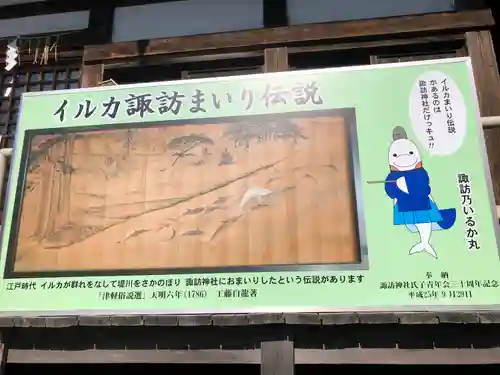 イルカ諏訪まいり伝説
イルカまいり伝説
があるのは
諏訪神社だけっキュ!!
諏訪乃いるか丸
江戸時代 イルカが群れをなして堤川をさかのぼり 諏訪神社におまいりしたという伝説があります
「津軽俗説選」天明六年(1786) 工藤白龍著
奉納
諏訪神社氏子青年会三十周年記念
平成25年9月29日